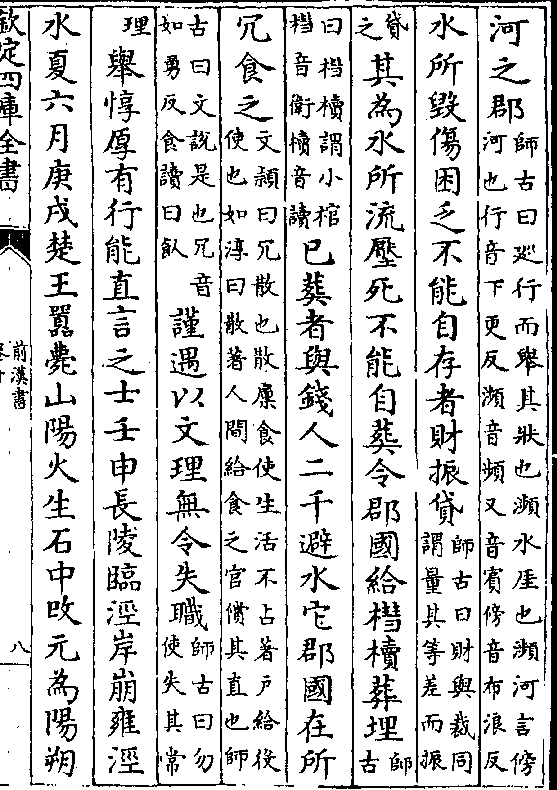 河之郡師古曰廵行而舉其狀也瀕水厓也瀕河言傍河也行音下更反瀕音頻又音賔傍音布浪反
水所毀傷困乏不能自存者財振貸師古曰財與裁同謂量其等差而振
貸之其為水所流壓死不能自葬令郡國給槥櫝葬埋師古
曰槥櫝謂小棺槥音衛櫝音讀已葬者與錢人二千避水它郡國在所
冗食之文穎曰冗散也散廩食使生活不占著戶給役使也如淳曰散著人間給食之官償其直也師
古曰文說是也冗音如勇反食讀曰飤謹遇以文理無令失職師古曰勿使失其常
理舉惇厚有行能直言之士壬申長陵臨涇岸崩雍涇
水夏六月庚戌楚王囂薨山陽火生石中改元為陽朔
欽定四庫全書
前漢書
八